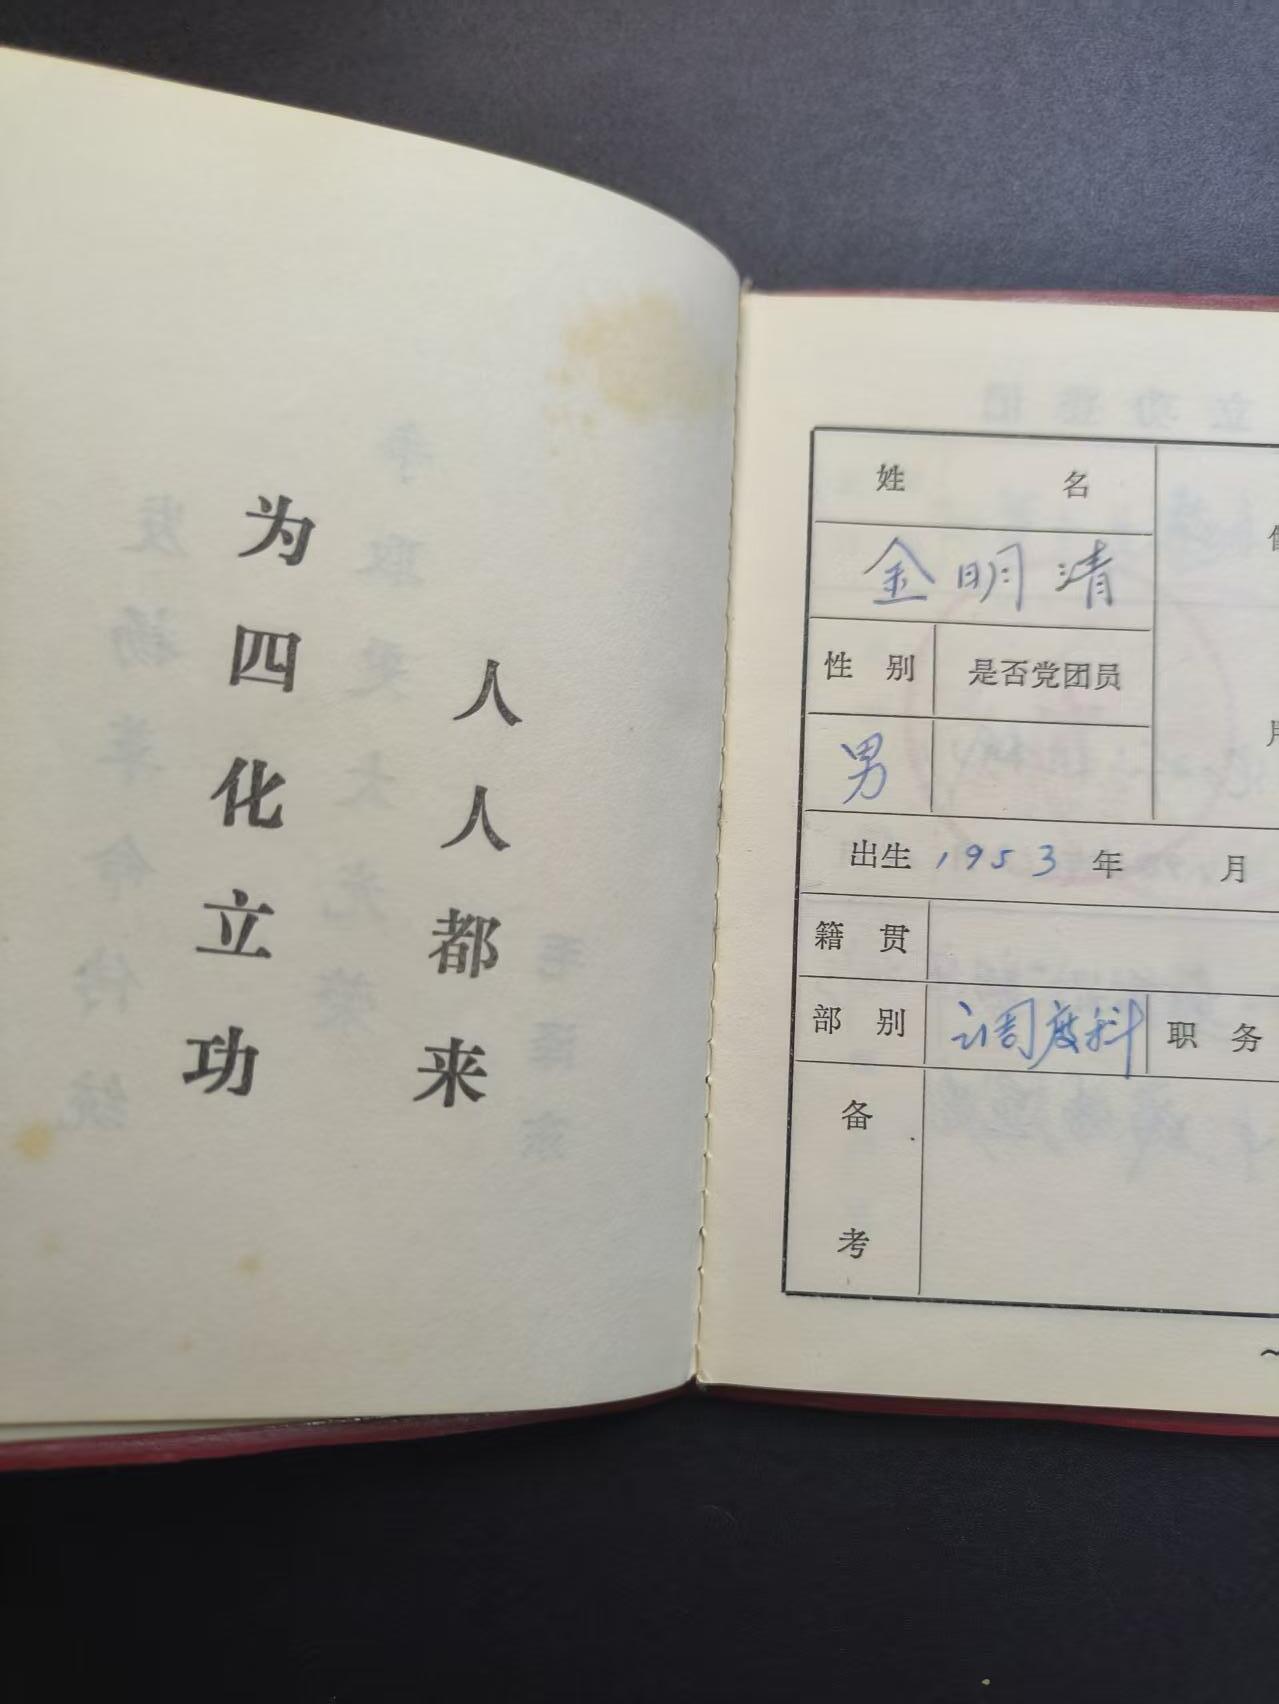 人人都来
为四化立功
姓 名
金明清
性 别 是否党团员
男
出生 1953 年 月
籍 贯
部 别 调度科 职 务
备
考